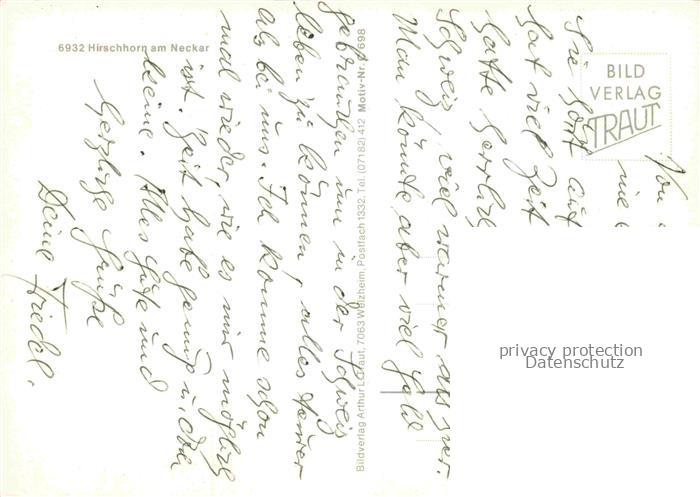 6932 Hirschhorn am Neckar
Bildverlag Arthur Traut, 7063 Welzheim, Postfach 1332, Tel. (07182) 412 Motiv-Nr. 698
BILD
VERLAG
TRAUT
Von
nie
Sie hört auf
hat viel Zeit
hatte herrlich
Schweiz, viel wärmer als hier.
Man könnte aber viel Geld
gebrauchen um in der Schweiz
leben zu können, alles teurer
als bei uns. Ich komme schon
mal wieder, wie es mir möglich
ist. Zeit habe genug u. doch
keine. Alles Gute und
herzliche Grüße
Deine Friedel.
privacy protection
Datenschutz